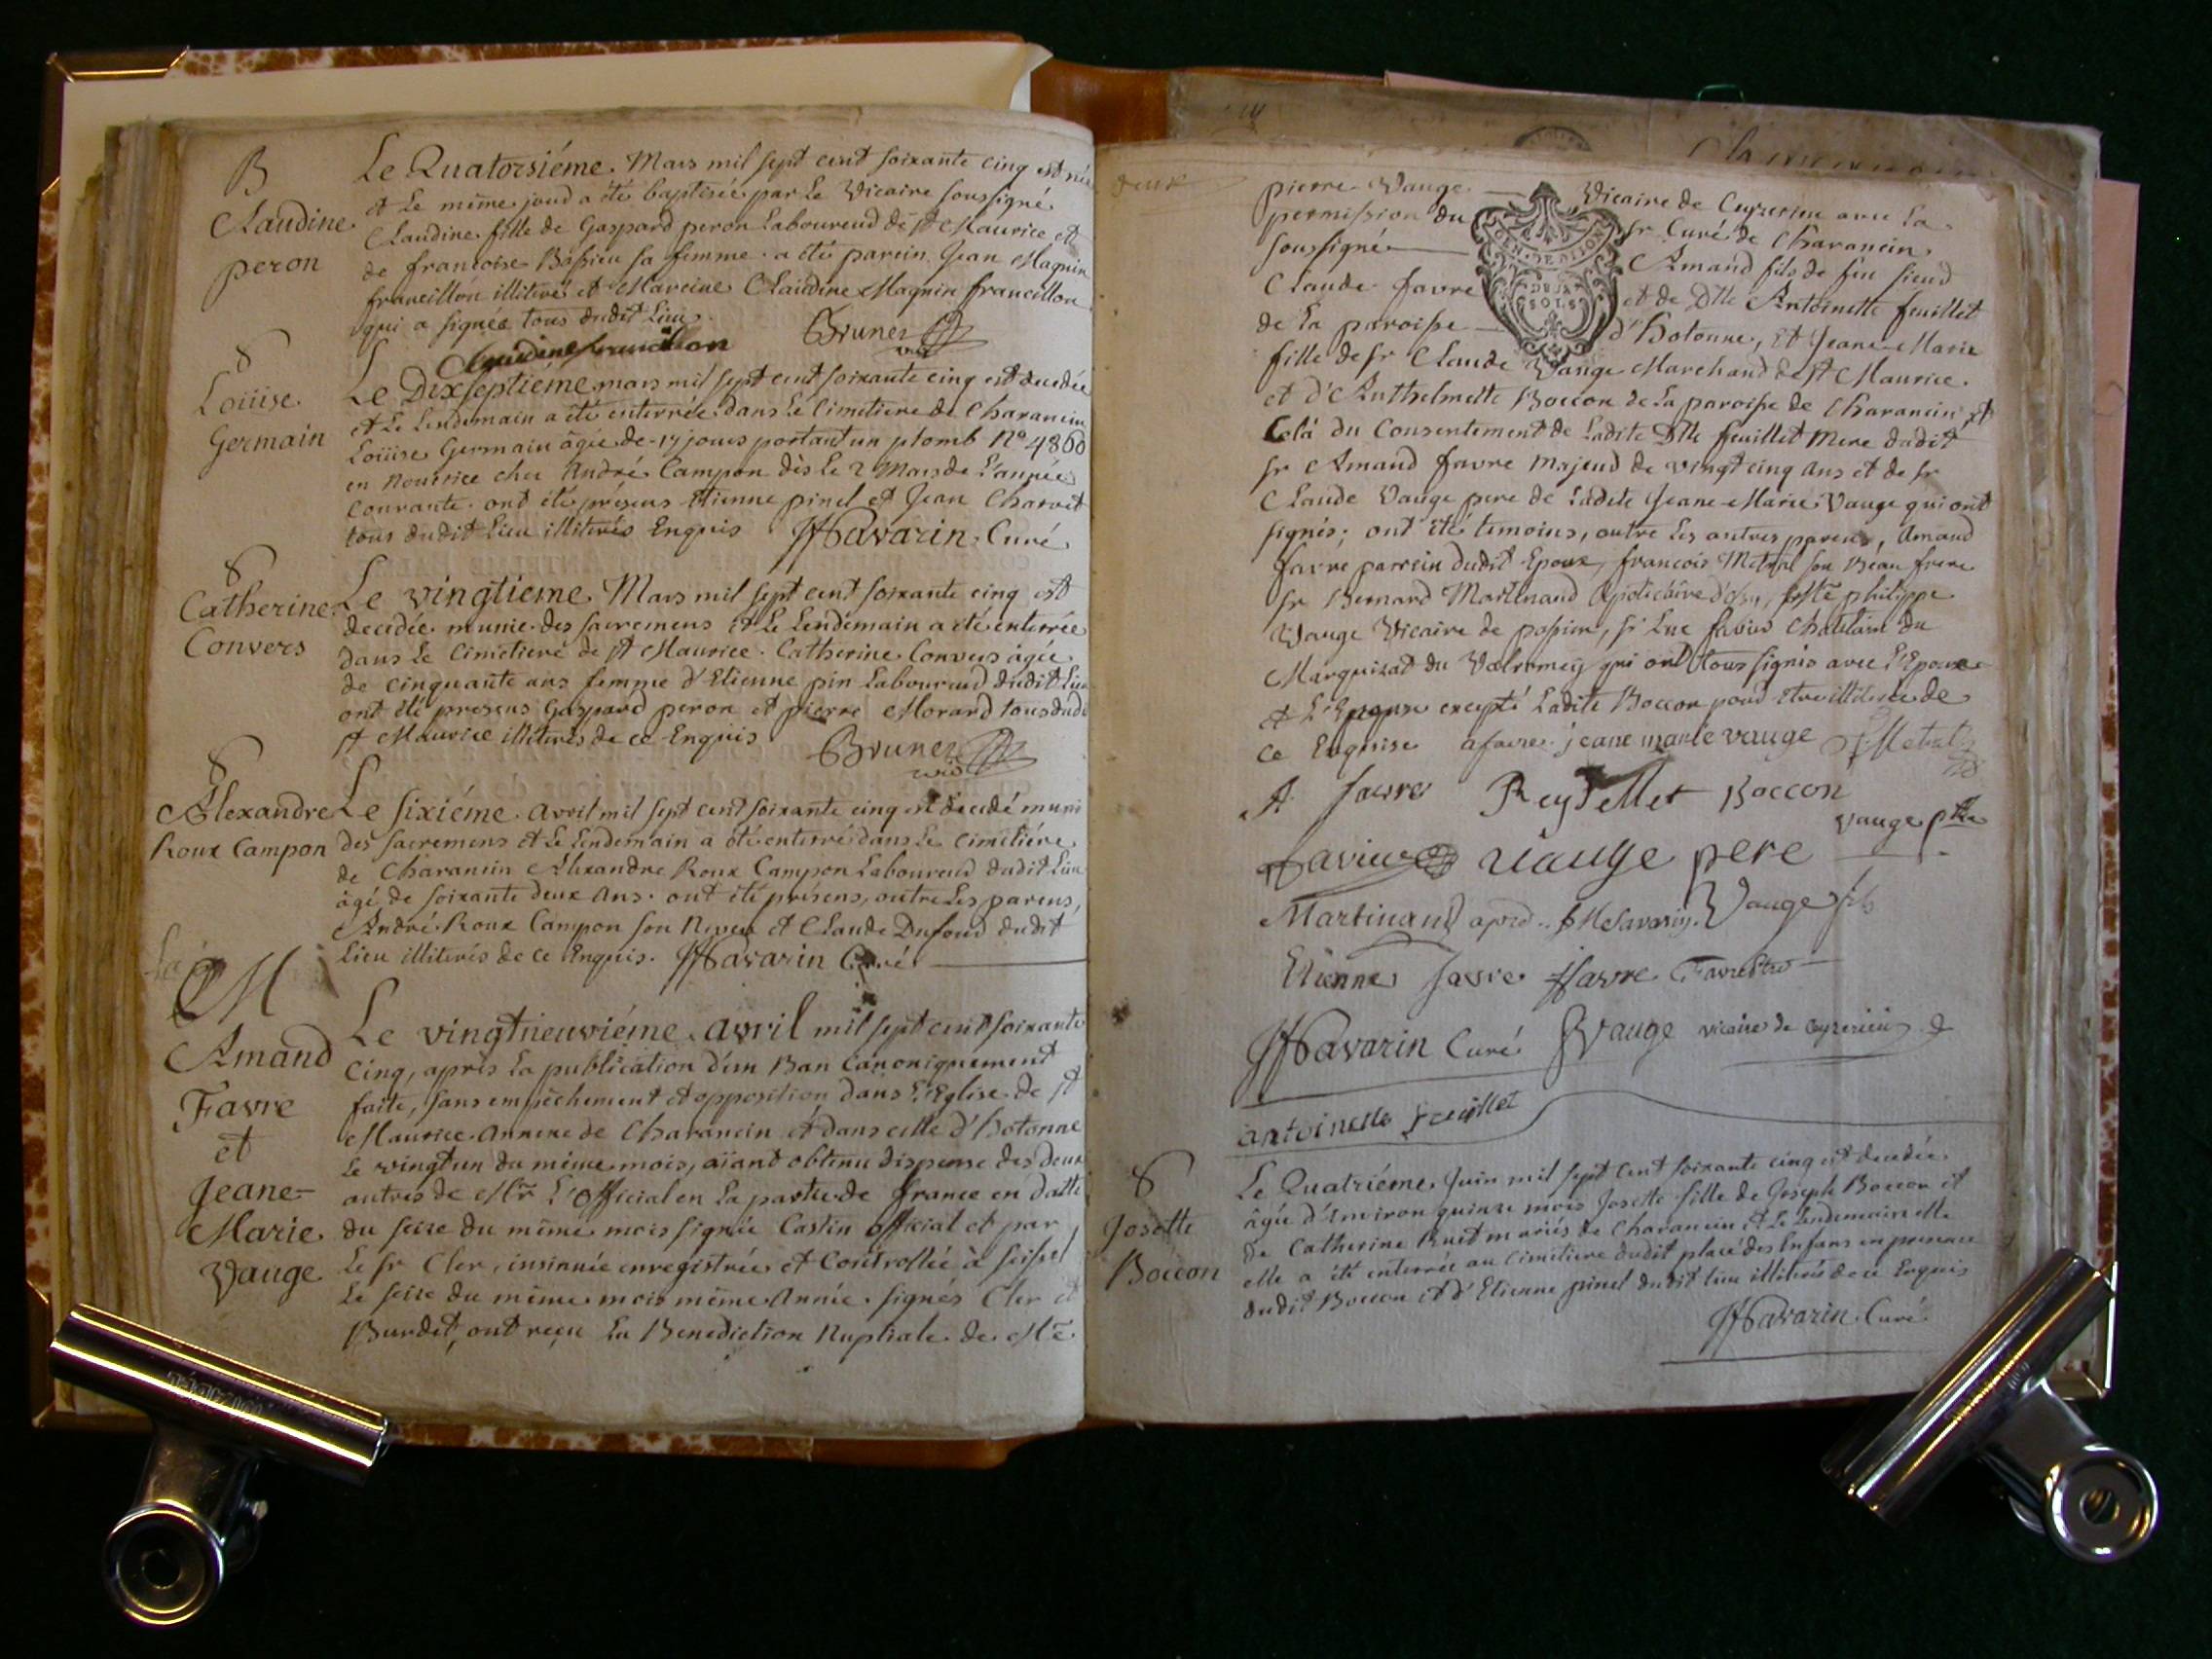 B
Claudine
peron
Le Quatorsiéme Mars mil sept cent soixante cinq est née
et Le même jour a été baptisée par Le Vicaire soussigné
Claudine fille de Gaspard peron Laboureur de St Maurice et
de francoise Bassieu sa femme a été parein Jean Magnin
francillon illitéré et Mareine Claudine Magnin francillon
qui a signée tous dudit Lieu
Claudine francillon
Brunet
vic
Loüise
Germain
Le Dixseptiéme mars mil sept cent soixante cinq est decedée
et Le Lendemain a été enterrée dans Le Cimetiere de Charancin
Loüise Germain âgée de 17 jours portant un plomb N° 4860
en nourrice cher André Campon dès Le 2 Mars de L'année
Courante. ont été présens Etienne pinel et Jean Charvet
tous dudit Lieu illiterés Enquis Savarin Curé
Catherine
Convers
Le vingtieme Mars mil sept cent soixante cinq est
decedée munie des sacremens et Le Lendemain a été enterrée
dans Le Cimetiere de St Maurice Catherine Convers âgée
de cinquante ans femme d'Etienne pin Laboureur dudit Lieu
ont été presens Gaspard peron et pierre Morard tous dudi
St Maurice illiterés de ce Enquis
Brunet
vic
Alexandre
Roux Campon
Le sixiéme Avril mil sept cent soixante cinq est decedé muni
des sacremens et Le Lendemain a été enterré dans Le Cimetiére
de Charancin Alexandre Roux Campon Laboureur dudit Lieu
âgé de soixante deux Ans. ont été présens, outre Les parens,
André Roux Campon son Neveu et Claude Dufour dudit
Lieu illiterés de ce Enquis. Savarin Curé
M
Amand
Favre
et
Jeane-
Marie
Vauge
Le vingtneuviéme avril mil sept cent soixante
Cinq, après La publication d'un Ban Canoniquement
faite, sans empêchement et opposition dans L'Eglise de St
Maurice Annexe de Charancin et dans celle d'Hotonne
Le vingtun du même mois, aïant obtenu dispense des deux
autres de Mr L'Official en La partie de france en datte
du seize du même mois signée Castin official et par
Le sr Cler, insinuée enregistrée et Contrôllée à seissel
Le seize du même mois même Année. signés Cler et
Burdet, ont reçu La Benediction Nuptiale de Mre
deux
pierre Vauge Vicaire de Ceyzerieu avec La
permission du sr Curé de Charancin
soussigné Amand fils de feu sieur
Claude favre et de Dlle Antoinette feuillet
GEN. DE DIJON
DEUX
SOLS
de La paroisse d'Hotonne, et Jeane-Marie
fille de sr Claude Vauge Marchand de St Maurice
et d'Anthelmette Boccon de La paroisse de Charancin et
Celà du Consentement de Ladite Dlle feuillet Mere dudit
sr Amand favre Majeur de vingt cinq Ans et de sr
Claude Vauge pere de Ladite Jeane-Marie Vauge qui ont
signés; ont été temoins, outre Les autres parens, Amand
favre parrein dudit Epoux, francois Metral son Beau frere
sr Bernard Martinand Apoticaire philippe
Vauge Vicaire de passin, sr Luc favier Châtelain du
Marquisat du Valromey qui ont tous signés avec L'Epoux
et L'Epouse excepté Ladite Boccon pour être illiterée de
ce Enquise afavre jeane marie vauge Metral
A. favre Reydellet Boccon
vauge ptre
favier vauge pere
Martinand Savarin Vauge fils
Etienne favre favre Favre
Savarin Curé Vauge vicaire de ceyzerieu
antoinette feuillet
Josette
Boccon
Le Quatriéme Juin mil sept cent soixante cinq est decedée
âgée d'Environ quinze mois Josette fille de Joseph Boccon et
de Catherine Ruet mariés de Charancin et Le Lendemain elle
elle a été enterrée au Cimetiere dudit place des Enfans en presence
dudit Boccon et d'Etienne pinel dudit Lieu illiterés de ce Enquis
Savarin Curé